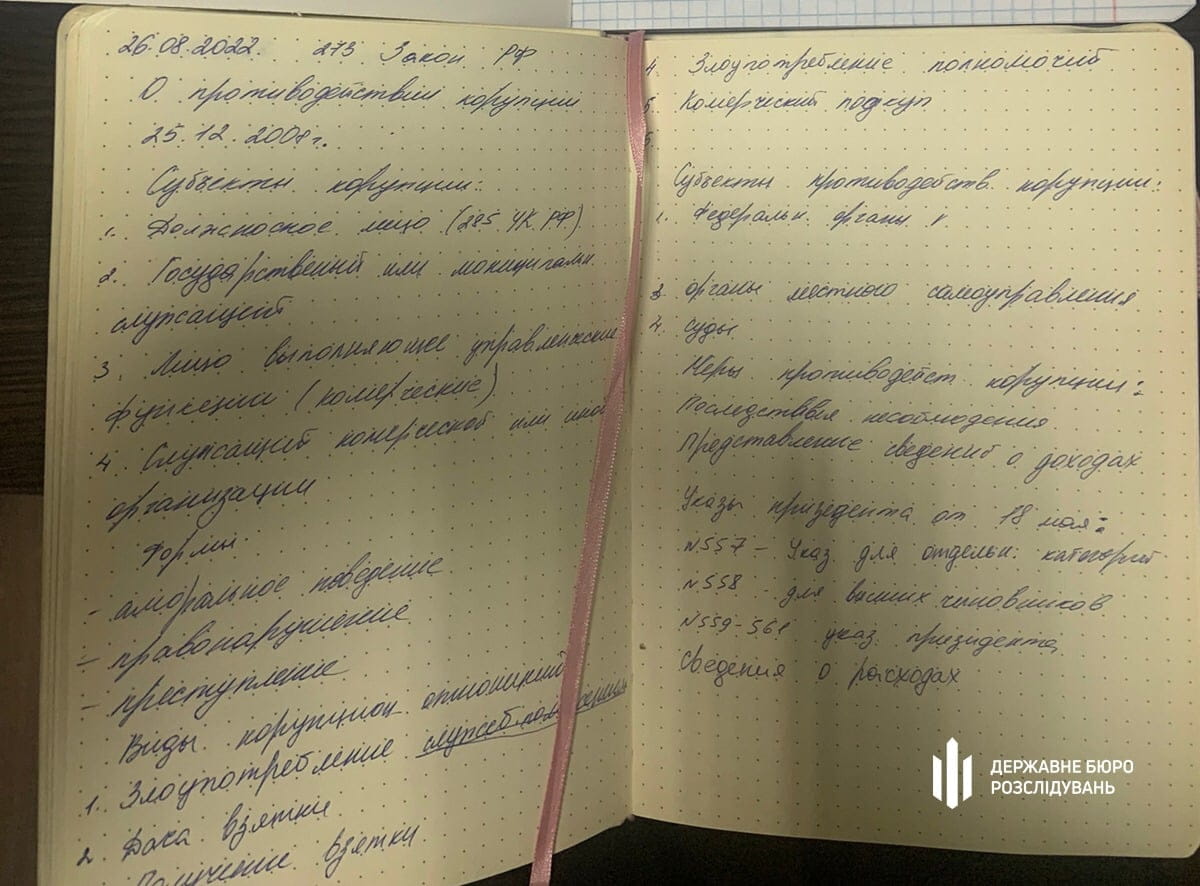 26.08.2022. 273 Закон РФ
О противодействии корупции
25.12.2008г.
Субъекты корупции:
1. Должносное лицо (285 УК РФ)
2. Государственный или
служащий
3. Лицо выполняющее управленские
функции (комерческие)
4 Служащий комерческой или иной
организации
Формы:
- аморальное поведение
- правонарушение
- преступление
Виды корупцион отношений
1. Злоупотребление служеб
2. Дача взятки
Получение взятки
4. Злоупотребление полномочий
5. Комерческий подкуп
6.
Субъекты противодейств. корупции:
1. Федеральн. органы
3. Органы местного самоуправления
4. Суды
Меры противодейст корупции:
Последствия несоблюдения
Представление сведений о доходах
Указы призедента от 18 мая:
N557 - Указ для отдельн. категорий
N558 - для высших чиновников
N559-561 указ призидента
Сведения о расходах
ДЕРЖАВНЕ БЮРО
РОЗСЛІДУВАНЬ